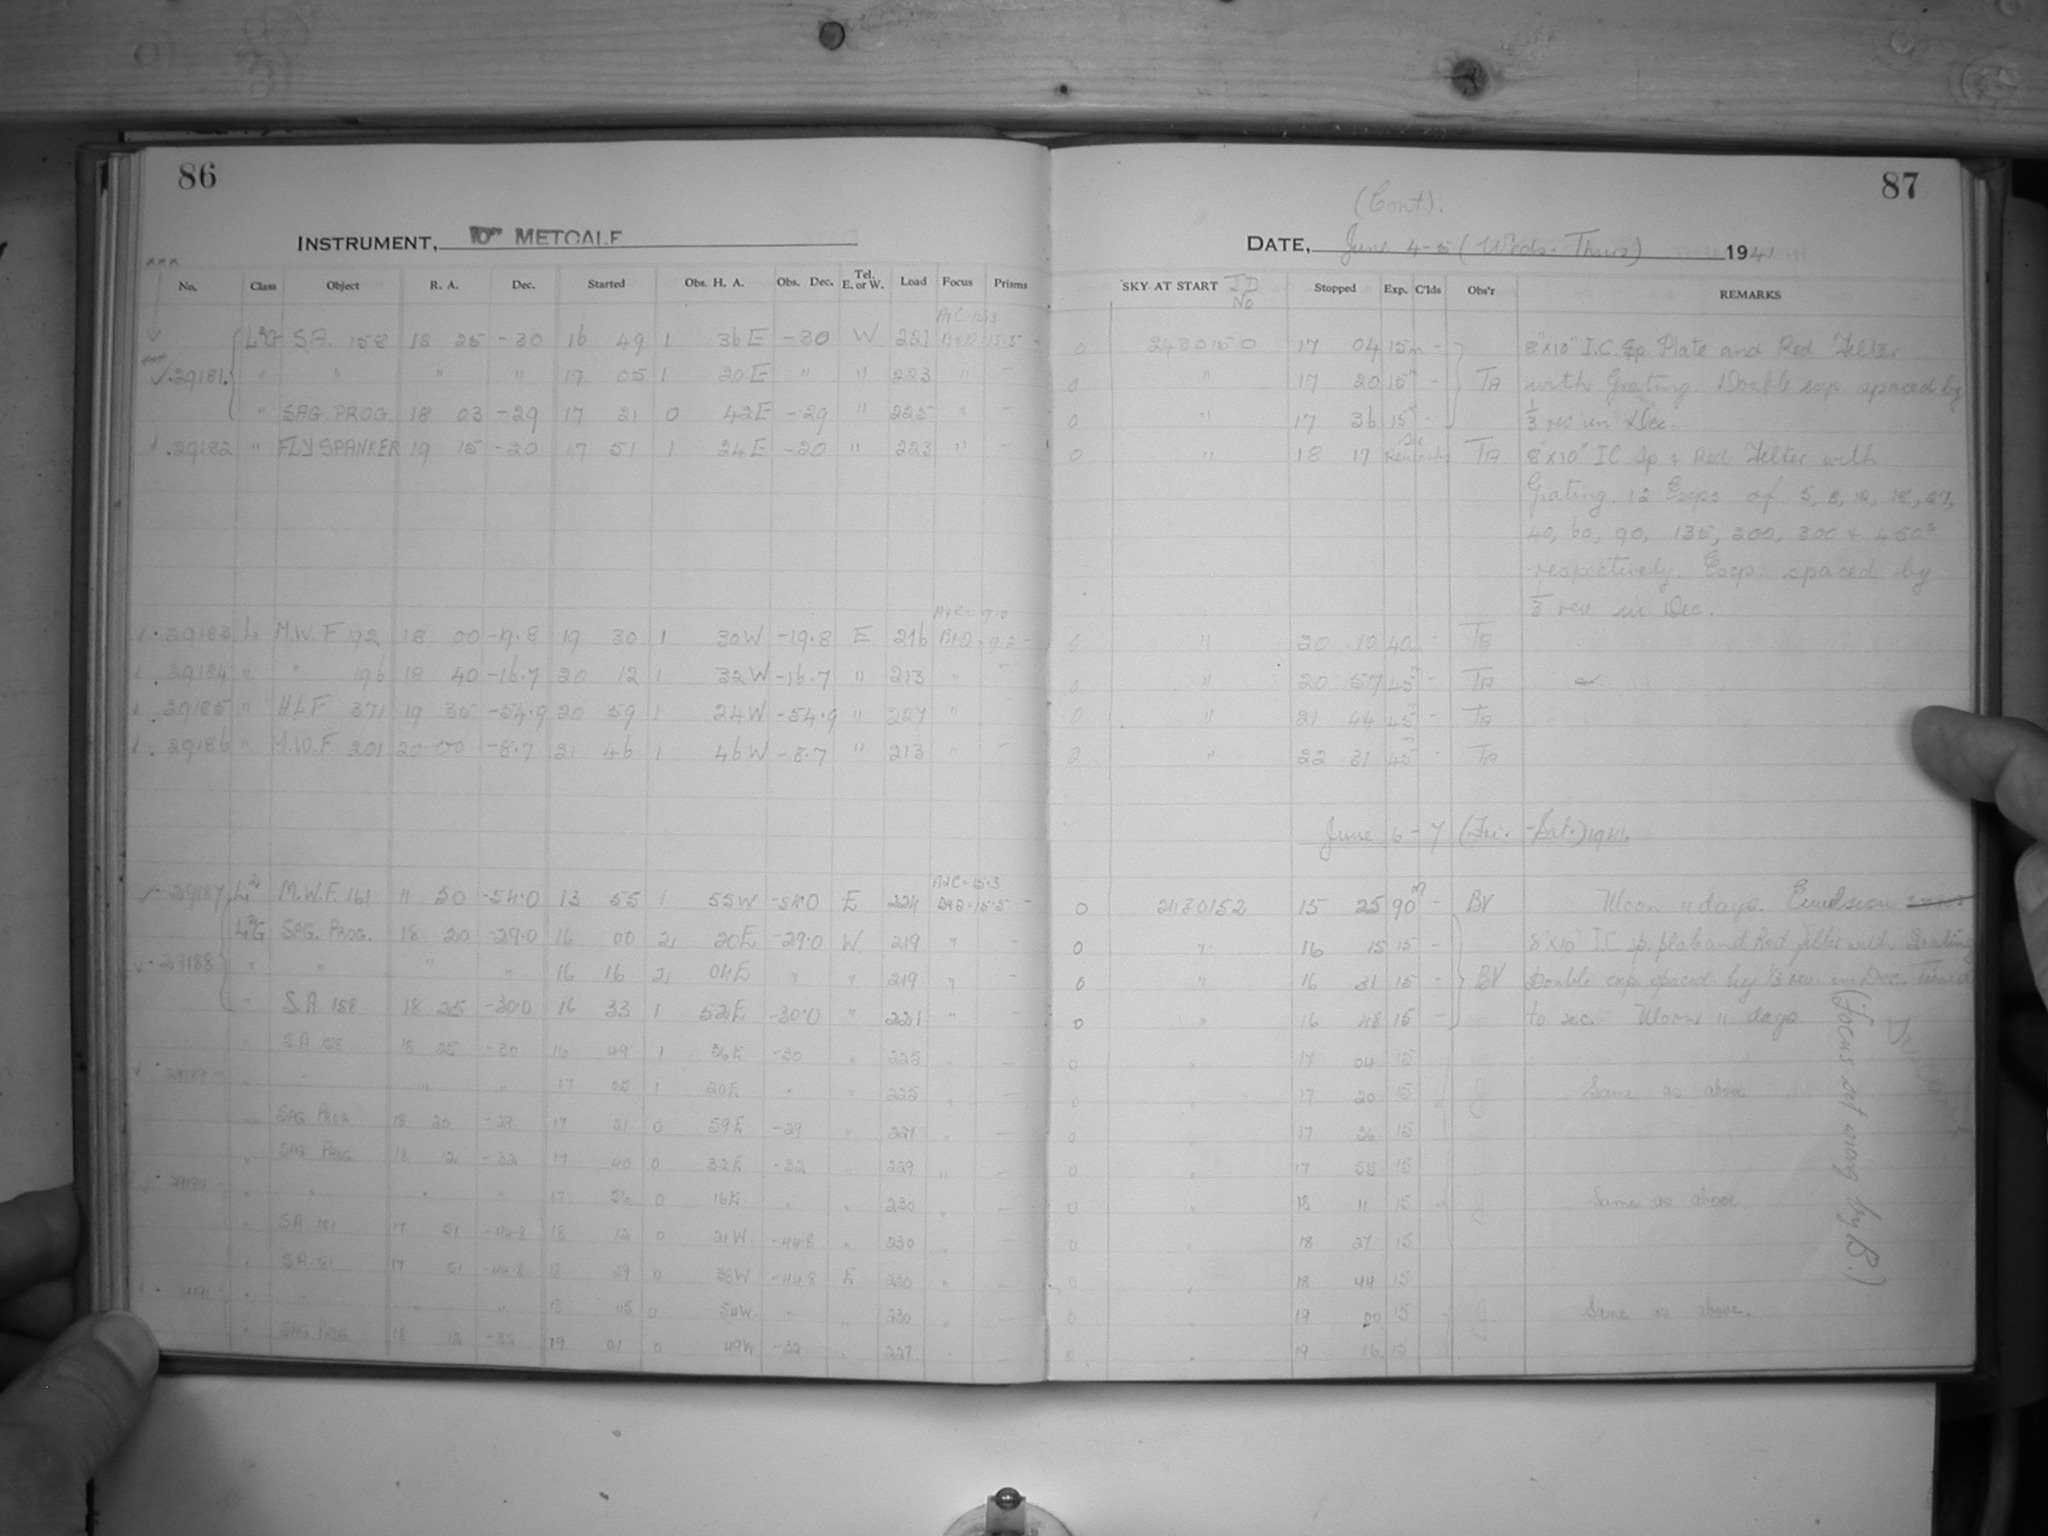 86
INSTRUMENT, 10" METCALF
No. Class Object R. A. Dec. Started Obs. H. A. Obs. Dec. Tel. E. or W. Load Focus Prisms
SA. 158 18 25 -30 16 49 1 36E -30 W 221
29181 " " " " 17 05 1 20E " " 223 " -
" SAG. PROG. 18 03 -29 17 21 0 42E -29 " 225 " -
29182 " FLYSPANKER 19 15 -20 17 51 1 24E -20 " 223 " -
29183 L M.W.F 192 18 00 19 30 1 30W -19.8 E 216
29184 " " 196 18 40 -16.7 20 12 1 32W -16.7 " 213 "
29185 " HLF 371 19 35 -54.9 20 59 1 24W -54.9 " 227 "
29186 " M.W.F 201 20 00 -8.7 21 46 1 46W -8.7 " 213 " -
29187 M.W.F. 161 " 50 -54.0 13 55 1 55W -54.0 E 224
SAG. PROG. 18 20 -29.0 16 00 2 20E -29.0 W 219 " -
29188 " " " " 16 16 2 04E " " 219 " -
" S.A 158 18 25 -30.0 16 33 1 52E -30.0 " 221 " -
S.A 158 18 25 -30 16 49 1 36E -30 " 225
29189 " " " 17 05 1 20E " 225
SAG PROG 18 20 -29 17 21 0 59E -29 " 227
SAG PROG 18 12 -32 17 40 0 32E -32 " 229
29190 " " " 17 56 0 16E " " 230
SA 181 17 51 -44.8 18 12 0 21W -44.8 " 230
SA 181 17 51 -44.8 18 29 0 38W -44.8 E 230
29191 " " " 18 45 0 54W " " 230
SAG PROG 18 12 -32 19 01 0 49W -32 " 227
87
(Cont.).
DATE, June 4-5 (Weds-Thurs) 1941
SKY AT START JD No Stopped Exp. C'lds Obs'r REMARKS
0 2430150 17 04 15m - 8"x10" I.C. Sp. Plate and Red Filter
0 " 17 20 15 - TB with Grating. Double exp spaced by
0 " 17 36 15 - 1/3 rev in Dec.
0 " 18 17 See Remarks TB 8"x10" IC Sp + Red Filter with
Grating. 12 Exps of 5, 8, 12, 18, 27,
40, 60, 90, 135, 200, 300 + 450s
respectively. Exp. spaced by
1/3 rev in Dec.
0 " 20 10 40m - TB
0 " 20 57 45 - TB
0 " 21 44 45 - TB
0 " 22 31 45 TB
June 6-7 (Fri.-Sat.) 1941.
0 2430152 15 25 90m - BV Moon 11 days. Emulsion
0 " 16 15 15 - 8"x10" I.C. sp. plate and Red filter with Grating
0 " 16 31 15 - BV Double exp spaced by 1/3 rev. in Dec. Timed
0 " 16 48 15 - to sec. Moon 11 days.
0 " 17 04 15
0 " 17 20 15 J Same as above
0 " 17 36 15
0 " 17 55 15
0 " 18 11 15 J Same as above.
0 " 18 27 15
0 " 18 44 15
0 " 19 00 15 J. Same as above.
0 " 19 16 15
(Focus set wrong by B.)